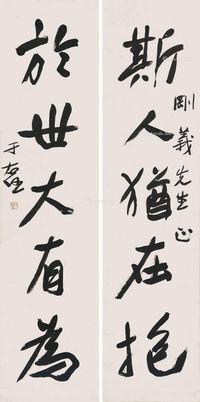 斯人猶在抱
剛義先生正
於世大有為
于右任